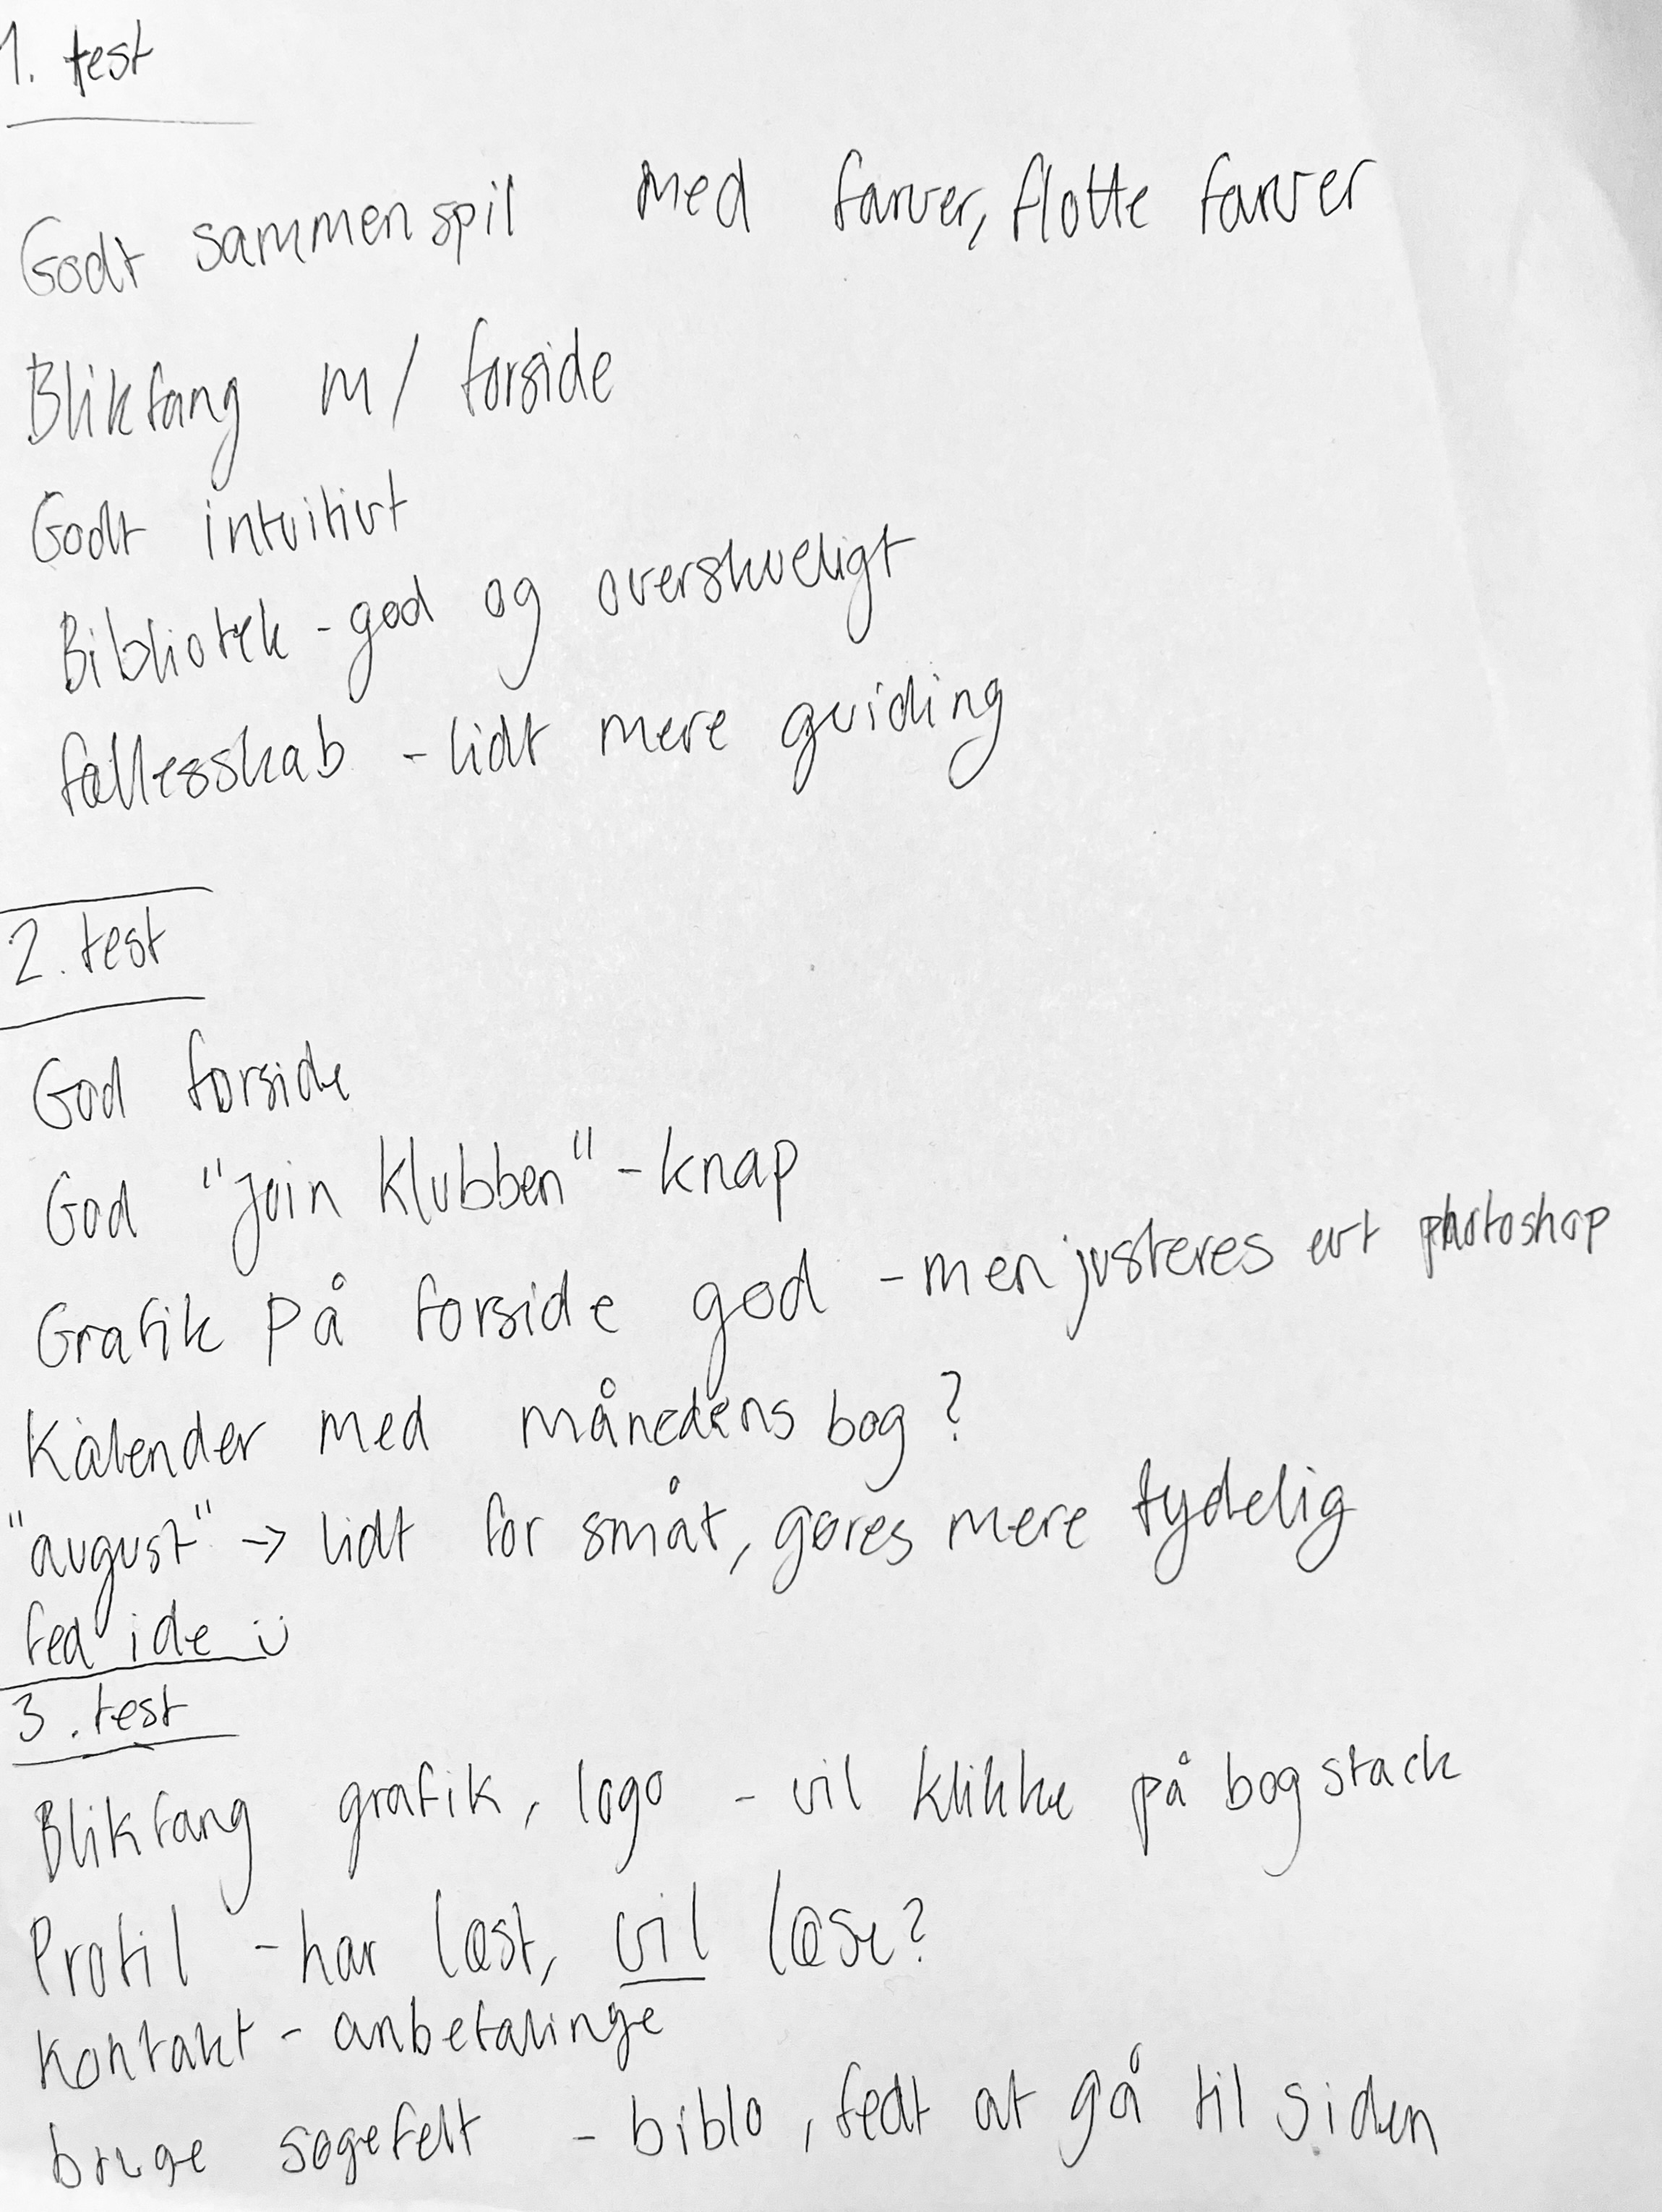 1. test
Godt sammenspil med farver, flotte farver
Blikfang m/ forside
Godt intuitivt
Bibliotek - god og overskueligt
fællesskab - lidt mere guiding
2. test
God forside
God "Join klubben" - knap
Grafik på forside god - men justeres evt photoshop
Kalender med månedens bog?
"august" → lidt for småt, gøres mere tydelig
fed ide ü
3. test
Blikfang grafik, logo - vil klikke på bogstack
Profil - har læst, vil læse?
Kontakt - anbefalinge
bruge søgefelt - biblo, fedt at gå til siden